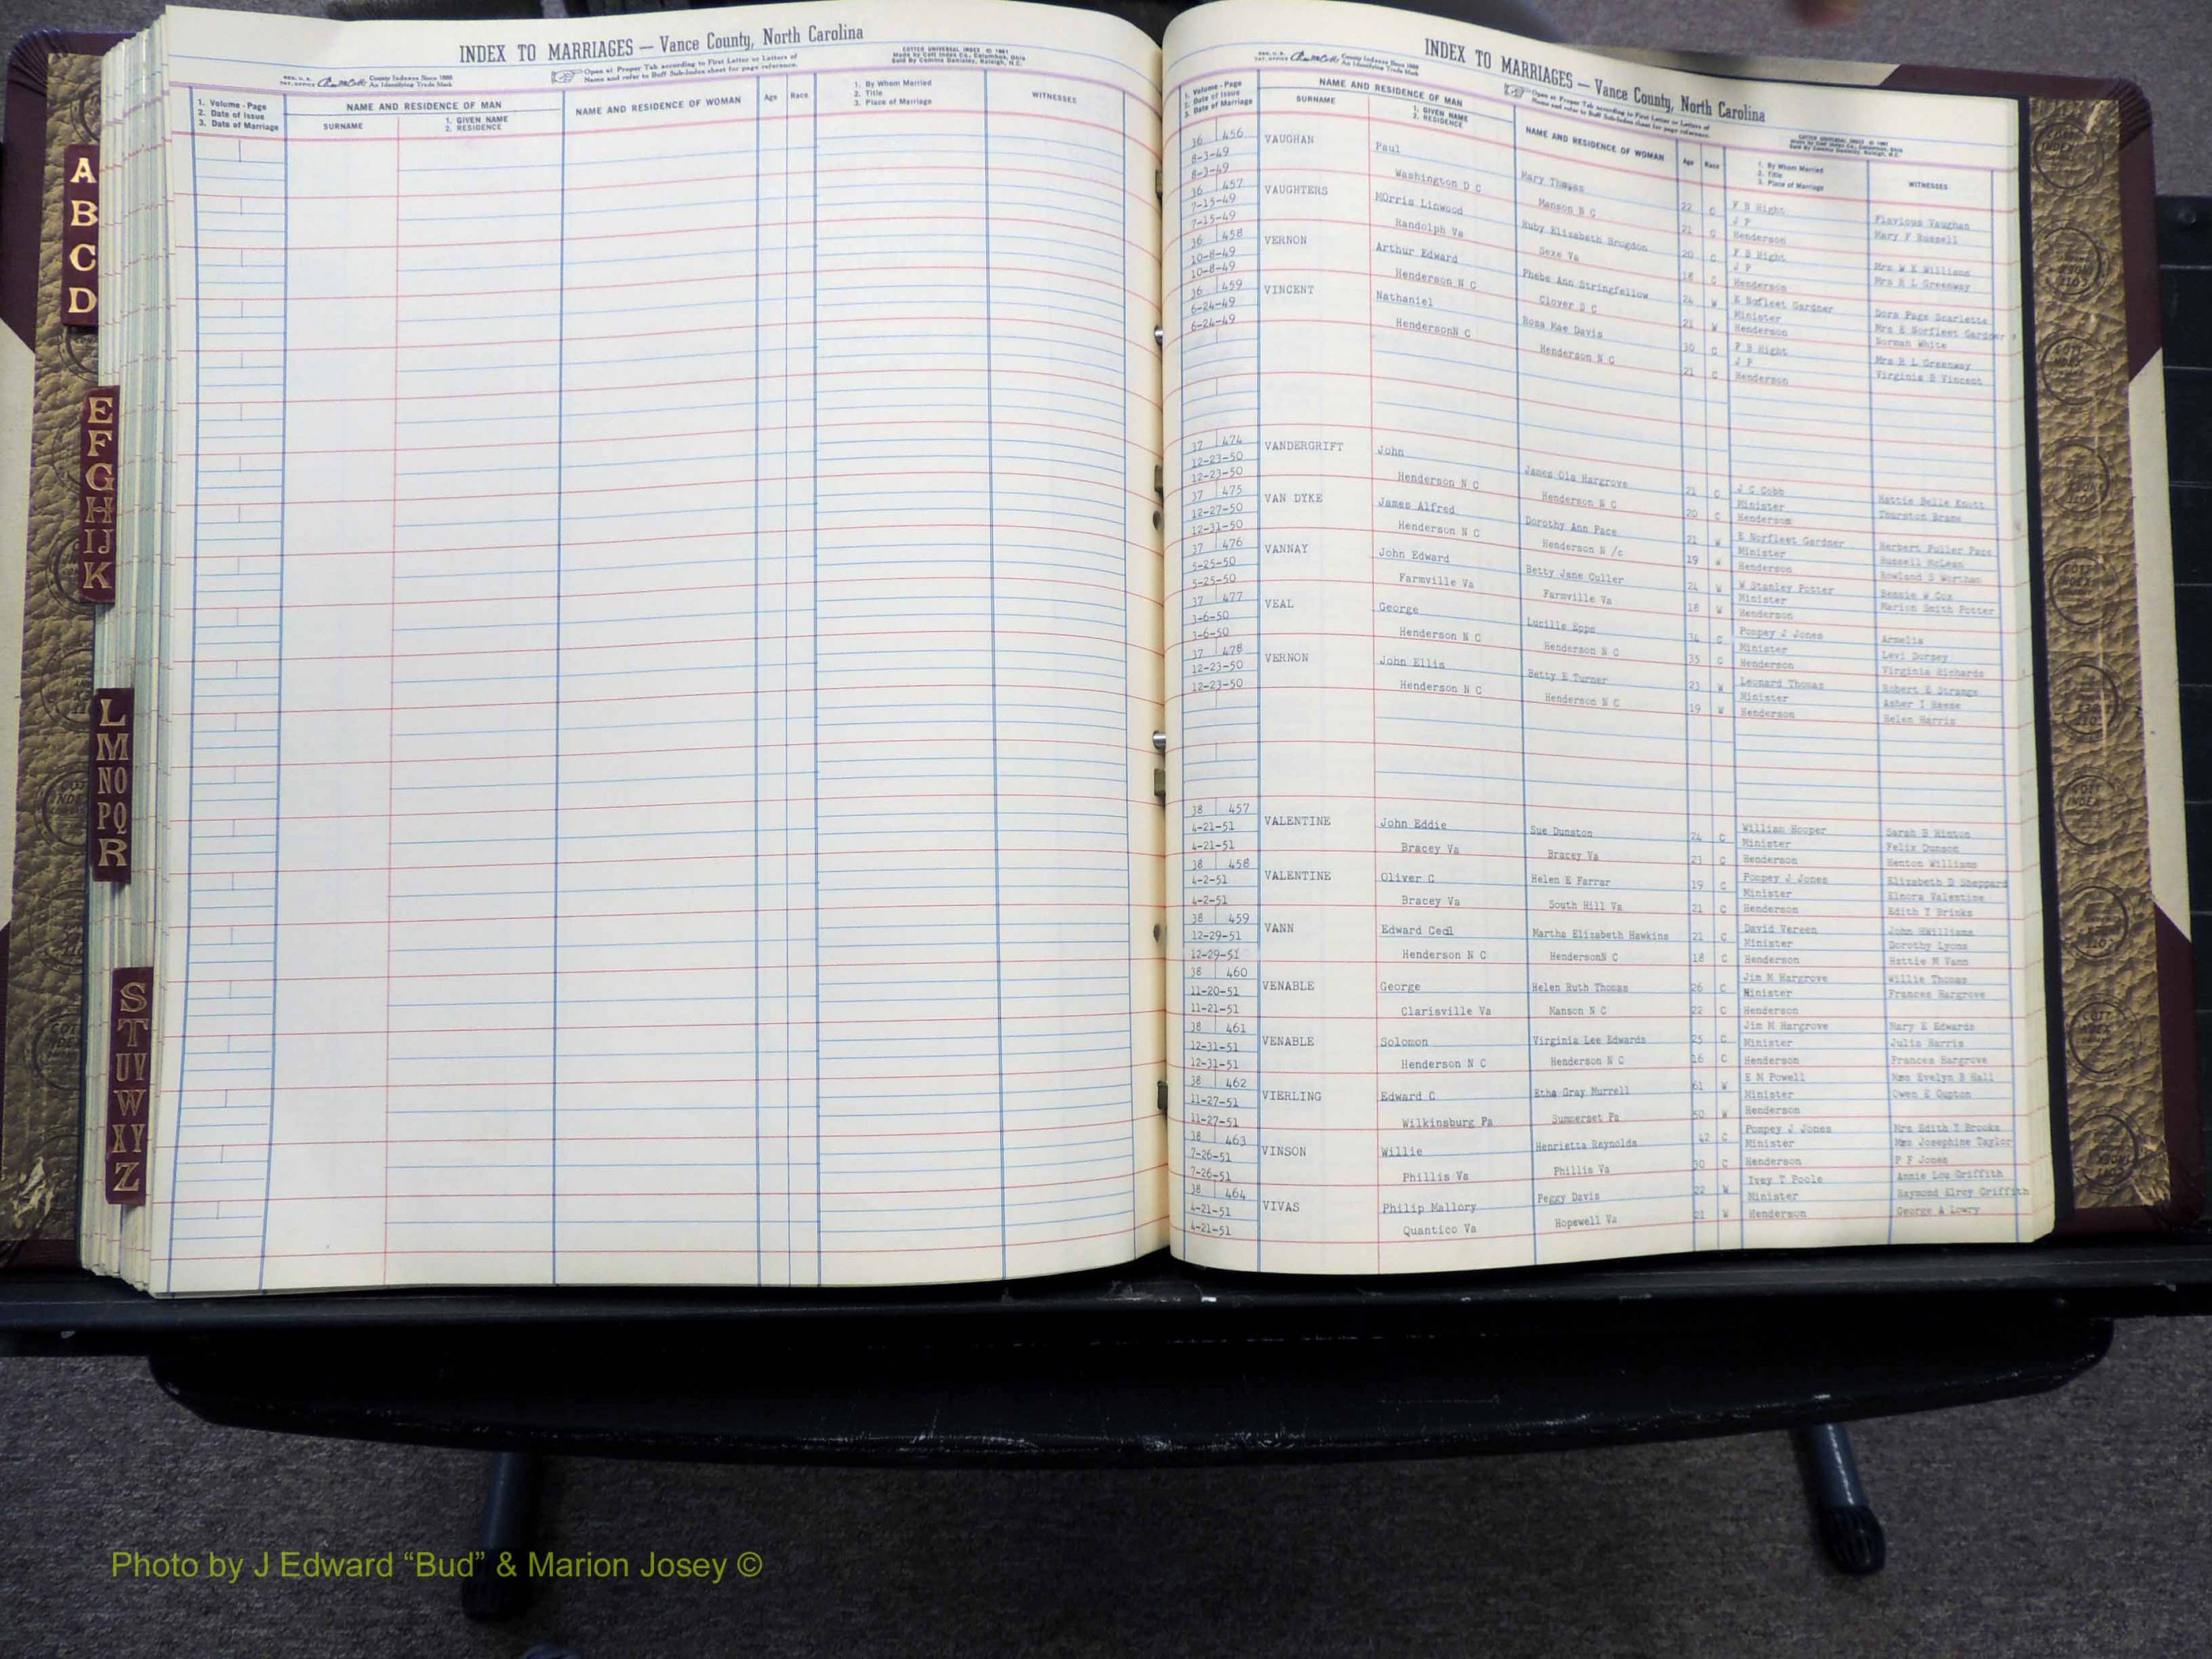 INDEX TO MARRIAGES — Vance County, North Carolina
County Indexes Since 1888
An Identifying Trade Mark
Open at Proper Tab according to First Letter or Letters of
Name and refer to Buff Sub-Index sheet for page reference.
1. Volume - Page
2. Date of Issue
3. Date of Marriage
NAME AND RESIDENCE OF MAN
SURNAME
1. GIVEN NAME
2. RESIDENCE
NAME AND RESIDENCE OF WOMAN
Age
Race
1. By Whom Married
2. Title
3. Place of Marriage
WITNESSES
A
B
C
D
E
F
G
H
IJ
K
L
M
NO
PQ
R
S
T
UV
W
XY
Z
INDEX TO MARRIAGES — Vance County, North Carolina
County Indexes Since 1888
An Identifying Trade Mark
Open at Proper Tab according to First Letter or Letters of
Name and refer to Buff Sub-Index sheet for page reference.
1. Volume - Page
2. Date of Issue
3. Date of Marriage
NAME AND RESIDENCE OF MAN
SURNAME
1. GIVEN NAME
2. RESIDENCE
NAME AND RESIDENCE OF WOMAN
Age
Race
1. By Whom Married
2. Title
3. Place of Marriage
WITNESSES
36 456 VAUGHAN Paul Mary Thomas 22 C F B Hight Flavious Vaughan
8-3-49 Washington D C Manson N C J P Mary F Russell
8-3-49 21 C Henderson
36 457 VAUGHTERS MOrris Linwood Ruby Elizabeth Brogdon 20 C F B Hight Mrs W K Williams
7-15-49 Randolph Va Va J P Mrs R L Greenway
7-15-49 18 C Henderson
36 458 VERNON Arthur Edward Phebe Ann Stringfellow 24 W E Norfleet Gardner Dora Page Scarlette
10-8-49 Henderson N C Clover S C Minister Mrs E Norfleet Gardner
10-8-49 21 W Henderson Norman White
36 459 VINCENT Nathaniel Rosa Mae Davis 30 C F B Hight Mrs R L Greenway
6-24-49 HendersonN C Henderson N C J P Virginia B Vincent
6-24-49 21 C Henderson
37 474 VANDERGRIFT John James Ola Hargrove 21 C J C Cobb Hattie Belle Knott
12-23-50 Henderson N C Henderson N C Minister Thurston
12-23-50 20 C Henderson
37 475 VAN DYKE James Alfred Dorothy Ann Pace 21 W E Norfleet Gardner Herbert Fuller Pace
12-27-50 Henderson N C Henderson N /c Minister Russell McLean
12-31-50 19 W Henderson Rowland S Wortham
37 476 VANNAY John Edward Betty Jane Culler 24 W W Stanley Potter Bessie W Cox
5-25-50 Farmville Va Farmville Va Minister Marion Smith Potter
5-25-50 18 W Henderson
37 477 VEAL George Lucille Epps 34 C Pompey J Jones Armelia
3-6-50 Henderson N C Henderson N C Minister Levi Dorsey
3-6-50 35 C Henderson Virginia Richards
37 478 VERNON John Ellis Betty E Turner 23 W Leonard Thomas Robert E Strange
12-23-50 Henderson N C Henderson N C Minister Asher I Reese
12-23-50 19 W Henderson Helen Harris
38 457 VALENTINE John Eddie Sue Dunston 24 C William Hooper Sarah B Hinton
4-21-51 Bracey Va Bracey Va Minister Felix Dunson
4-21-51 23 C Henderson Henton Williams
38 458 VALENTINE Oliver C Helen E Farrar 19 C Pompey J Jones Elizabeth D Sheppard
4-2-51 Bracey Va South Hill Va Minister Elnora Valentine
4-2-51 21 C Henderson Edith Y Brinks
38 459 VANN Edward Cecil Martha Elizabeth Hawkins 21 C David Vereen John HWilliams
12-29-51 Henderson N C HendersonN C Minister Dorothy Lyons
12-29-51 18 C Henderson Hattie M Vann
38 460 VENABLE George Helen Ruth Thomas 26 C Jim M Hargrove Willie Thomas
11-20-51 Clarisville Va Manson N C Minister Frances Hargrove
11-21-51 22 C Henderson
38 461 VENABLE Solomon Virginia Lee Edwards 25 C Jim M Hargrove Mary E Edwards
12-31-51 Henderson N C Henderson N C Minister Julia Harris
12-31-51 16 C Henderson Frances Hargrove
38 462 VIERLING Edward C Etha Gray Murrell 61 W E M Powell Mrs Evelyn B Hall
11-27-51 Wilkinsburg Pa Summerset Pa Minister Owen E Gupton
11-27-51 50 W Henderson
38 463 VINSON Willie Henrietta Reynolds 42 C Pompey J Jones Mrs Edith Y Brooks
7-26-51 Phillis Va Phillis Va Minister Mrs Josephine Taylor
7-26-51 30 C Henderson P F Jones
38 464 VIVAS Philip Mallory Peggy Davis 22 W Ivey T Poole Annie Lou Griffith
4-21-51 Quantico Va Hopewell Va Minister Raymond Elroy Griffith
4-21-51 21 W Henderson George A Lowry
Photo by J Edward “Bud” & Marion Josey ©